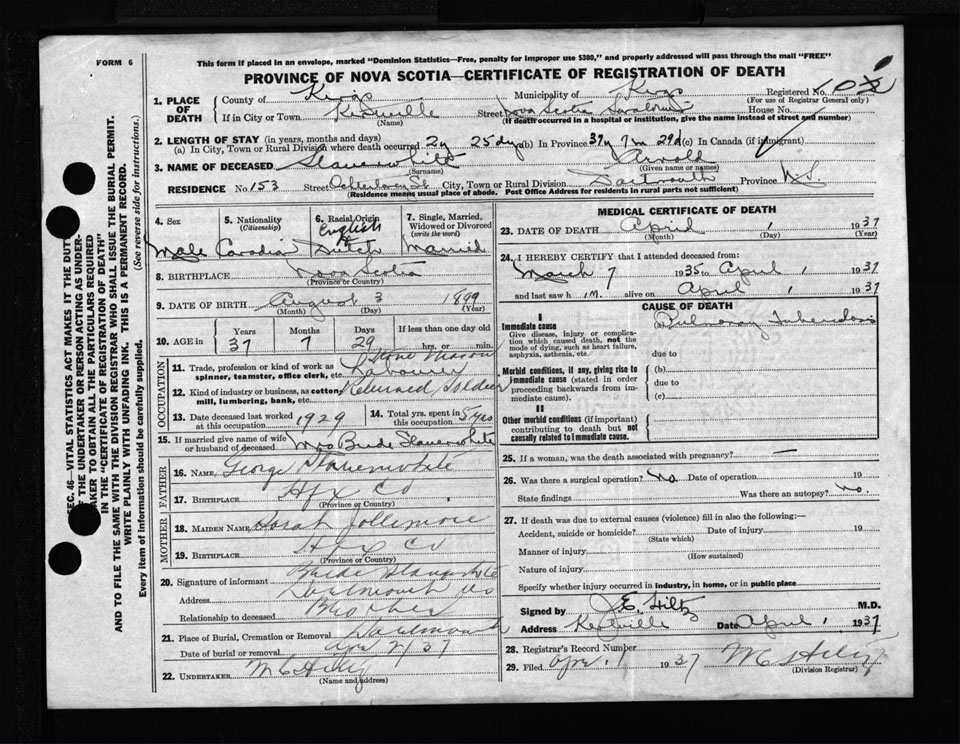 FORM 6
This form if placed in an envelope, marked "Dominion Statistics—Free, penalty for improper use $300," and properly addressed will pass through the mail "FREE"
PROVINCE OF NOVA SCOTIA—CERTIFICATE OF REGISTRATION OF DEATH
1. PLACE OF DEATH
County of Kings Municipality of Kings Registered No.
(For use of Registrar General only)
If in City or Town Kentville Street Nova Scotia House No.
(Name) (If death occurred in a hospital or institution, give the name instead of street and number)
2. LENGTH OF STAY (in years, months and days)
(a) In City, Town or Rural Division where death occurred 2y 25dys (b) In Province 37y 7m 29d (c) In Canada (if immigrant)
3. NAME OF DECEASED Slauenwhite Arnold
(Surname) (Given name or names)
RESIDENCE No. 153 Street St City, Town or Rural Division Dartmouth Province N.S.
(Residence means usual place of abode. Post Office Address for residents in rural parts not sufficient)
4. Sex
Male
5. Nationality
(Citizenship)
Canadian
6. Racial Origin
English
Dutch
7. Single, Married, Widowed or Divorced
(write the word)
Married
8. BIRTHPLACE Nova Scotia
(Province or Country)
9. DATE OF BIRTH August 3 1899
(Month) (Day) (Year)
10. AGE in Years Months Days If less than one day old
37 7 29 hrs. or min.
OCCUPATION
11. Trade, profession or kind of work as spinner, teamster, office clerk, etc. Stone Mason
Labourer
12. Kind of industry or business, as cotton mill, lumbering, bank, etc. Returned Soldier
13. Date deceased last worked at this occupation 1929
14. Total yrs. spent in 5 yrs
15. If married give name of wife or husband of deceased Mrs Slauenwhite
FATHER
16. NAME George Slauenwhite
17. BIRTHPLACE Hfx Co.
(Province or Country)
MOTHER
18. MAIDEN NAME Sarah Jollimore
19. BIRTHPLACE Hfx Co
(Province or Country)
20. Signature of informant
Address Dartmouth NS
Relationship to deceased Brother
21. Place of Burial, Cremation or Removal Dartmouth
Date of burial or removal Apr 2/37
22. UNDERTAKER
(Name and address)
MEDICAL CERTIFICATE OF DEATH
23. DATE OF DEATH April 1 1937
(Month) (Day) (Year)
24. I HEREBY CERTIFY that I attended deceased from:
March 7 1935 to April 1 1937
and last saw him alive on April 1 1937
CAUSE OF DEATH
I
Immediate cause
Give disease, injury or complication which caused death, not the mode of dying, such as heart failure, asphyxia, asthenia, etc.
Pulmonary Tuberculosis
due to
Morbid conditions, if any, giving rise to immediate cause (stated in order proceeding backwards from immediate cause).
(b)
due to
(c)
II
Other morbid conditions (if important) contributing to death but not causally related to immediate cause.
25. If a woman, was the death associated with pregnancy? —
26. Was there a surgical operation? No. Date of operation 19
State findings Was there an autopsy? No.
27. If death was due to external causes (violence) fill in also the following:—
Accident, suicide or homicide? Date of injury 19
(State which)
Manner of injury
(How sustained)
Nature of injury
Specify whether injury occurred in industry, in home, or in public place
Signed by J.E. Hiltz M.D.
Address Kentville Date April 1 1937
28. Registrar's Record Number
29. Filed Apr. 1 1937
(Division Registrar)
SEC. 46—VITAL STATISTICS ACT MAKES IT THE DUTY OF THE UNDERTAKER OR PERSON ACTING AS UNDERTAKER TO OBTAIN ALL THE PARTICULARS REQUIRED IN THE "CERTIFICATE OF REGISTRATION OF DEATH" AND TO FILE THE SAME WITH THE DIVISION REGISTRAR WHO SHALL ISSUE THE BURIAL PERMIT.
WRITE PLAINLY WITH UNFADING INK. THIS IS A PERMANENT RECORD.
Every item of Information should be carefully supplied. (See reverse side for instructions.)